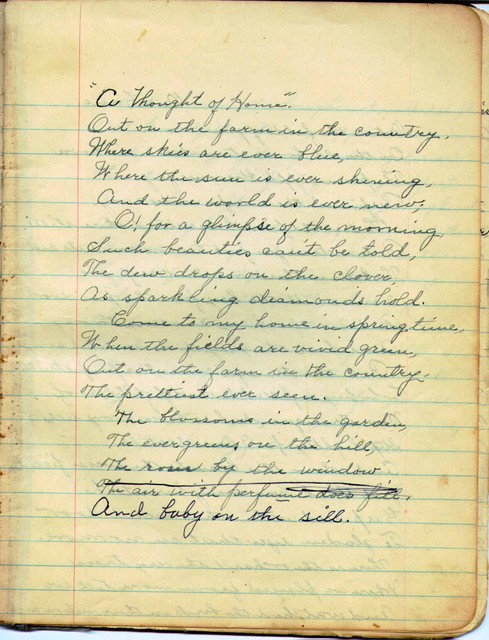 "A Thought of Home".
Out on the farm in the country,
Where skies are ever blue,
Where the sun is ever shining,
And the world is ever new;
O! for a glimpse of the morning,
Such beauties can't be told,
The dew drops on the clover,
As sparkling diamonds hold.
Come to my home in springtime,
When the fields are vivid green,
Out on the farm in the country,
The prettiest ever seen.
The blossoms in the garden,
The evergreens on the hill,
The roses by the window
The air with perfume does fill.
And baby on the sill.